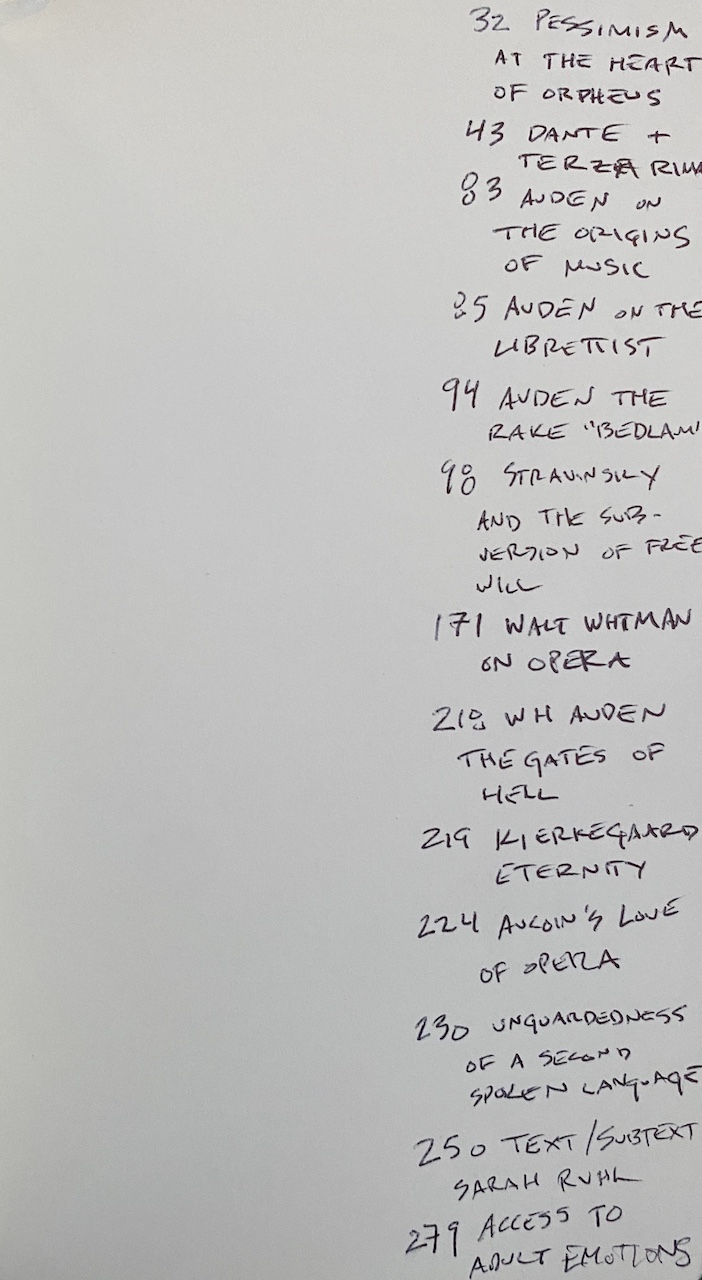 32 PESSIMISM
AT THE HEART
OF ORPHEUS
43 DANTE +
TERZA RIMA
83 AUDEN ON
THE ORIGINS
OF MUSIC
85 AUDEN ON THE
LIBRETTIST
94 AUDEN THE
RAKE "BEDLAM"
98 STRAVINSKY
AND THE SUB-
VERSION OF FREE
WILL
171 WALT WHITMAN
ON OPERA
218 WH AUDEN
THE GATES OF
HELL
219 KIERKEGAARD
ETERNITY
224 AUCOIN'S LOVE
OF OPERA
230 UNGUARDEDNESS
OF A SECOND
SPOKEN LANGUAGE
250 TEXT/SUBTEXT
SARAH RUHL
279 ACCESS TO
ADULT EMOTIONS